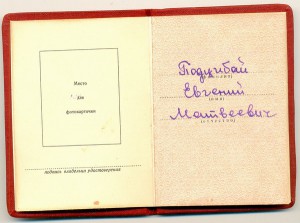 Место
для
фотокарточки
подпись владельца удостоверения
Подцибай
Евгений
(ИМЯ)
Матвеевич
(ОТЧЕСТВО)